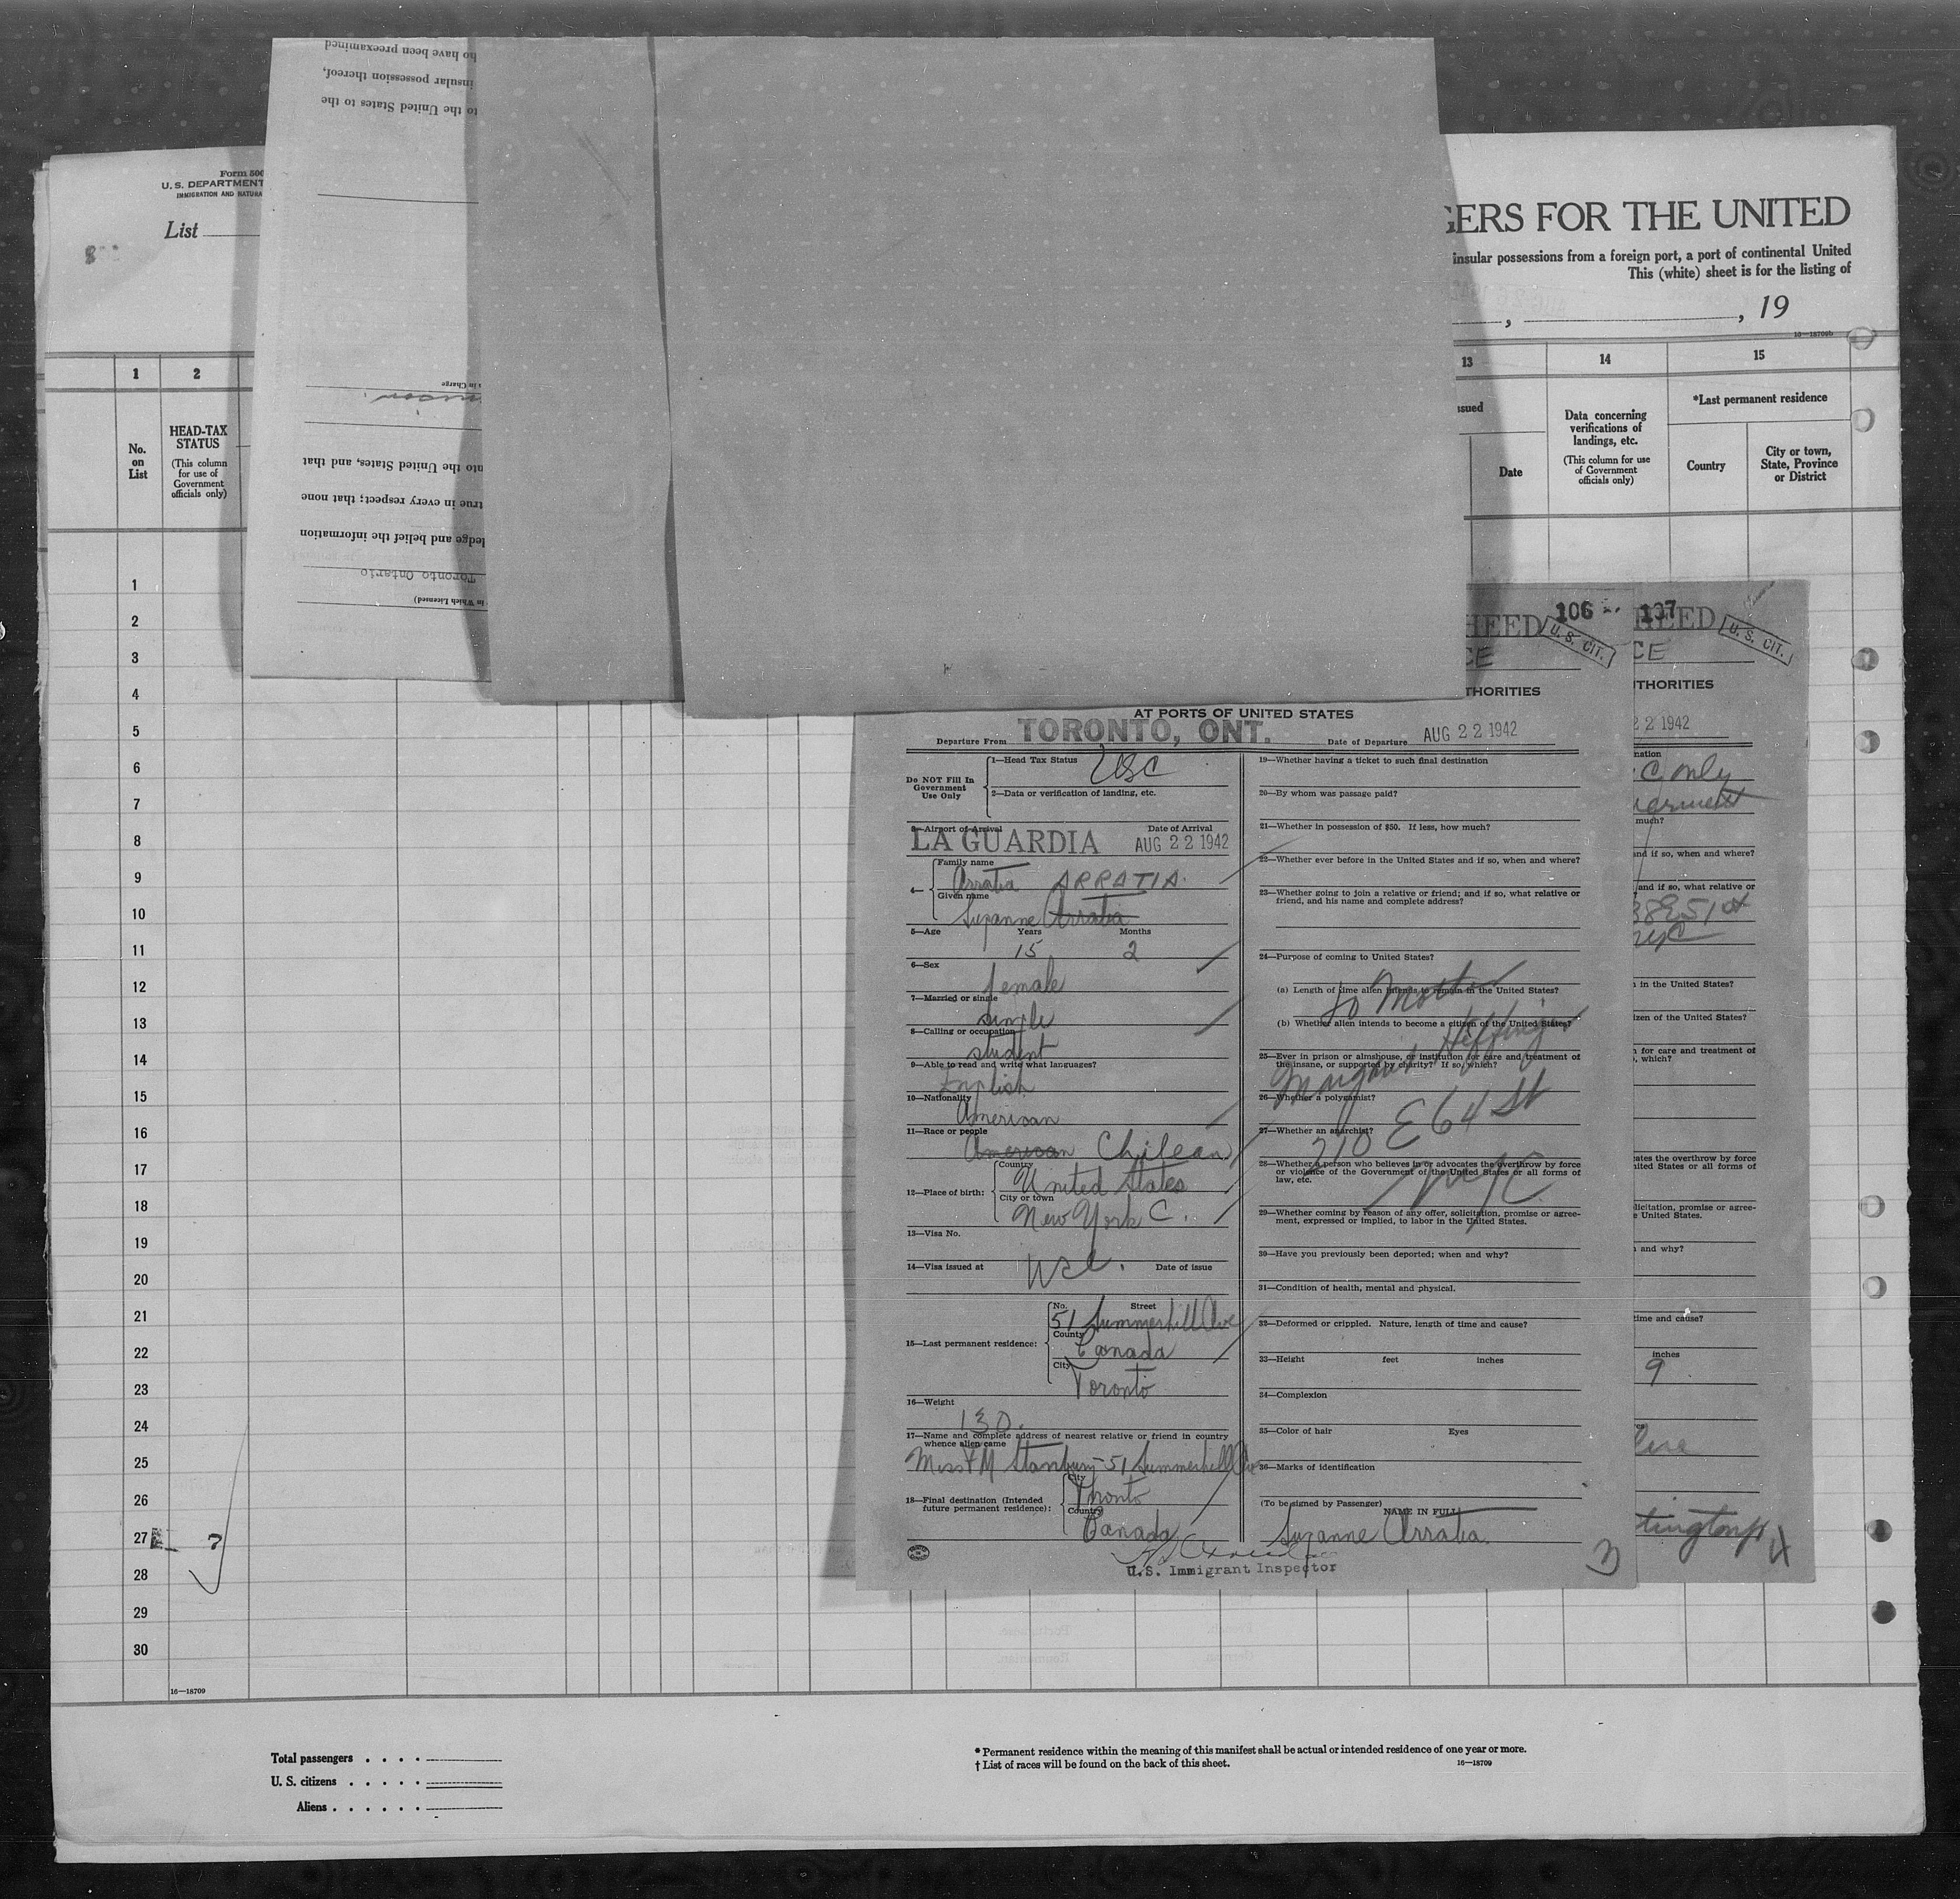 ho have been preexamined
insular possession thereof,
to the United States to the
in Charge
nto the United States, and that
true in every respect; that none
ledge and belief the information
Toronto Ontario
in Which Licensed)
Form 500
U. S. DEPARTMENT
IMMIGRATION AND NATURA
List
8
GERS FOR THE UNITED
insular possessions from a foreign port, a port of continental United
This (white) sheet is for the listing of
, , 19
16—18709b
1 2 13 14 15
No. on List
HEAD-TAX STATUS
(This column for use of Government officials only)
ssued
Date
Data concerning verifications of landings, etc.
(This column for use of Government officials only)
*Last permanent residence
Country
City or town, State, Province or District
1
2
3
4
5
6
7
8
9
10
11
12
13
14
15
16
17
18
19
20
21
22
23
24
25
26
27 ?
28
29
30
16—18709
HEED 106
U. S. CIT.
CE
THORITIES
AT PORTS OF UNITED STATES
Departure From TORONTO, ONT. Date of Departure AUG 22 1942
Do NOT Fill In Government Use Only
1—Head Tax Status USC
2—Data or verification of landing, etc.
3—Airport of Arrival Date of Arrival
LA GUARDIA AUG 22 1942
4— Family name
Arratia ARRATIA.
Given name
Suzanne Arratia
5—Age Years Months
15 2
6—Sex
female
7—Married or single
single
8—Calling or occupation
student
9—Able to read and write what languages?
English
10—Nationality
American
11—Race or people
American Chilean
12—Place of birth: Country
United States
City or town
New York C.
13—Visa No.
14—Visa issued at Date of issue
USC.
15—Last permanent residence: No. Street
51 Summerhill Ave
County
Canada
City
Toronto
16—Weight
130.
17—Name and complete address of nearest relative or friend in country
whence alien came
Miss F M Stanbury-51 Summerhill Ave
18—Final destination (Intended future permanent residence): City
Toronto
Country
Canada
U.S. Immigrant Inspector
19—Whether having a ticket to such final destination
20—By whom was passage paid?
21—Whether in possession of $50. If less, how much?
22—Whether ever before in the United States and if so, when and where?
23—Whether going to join a relative or friend; and if so, what relative or
friend, and his name and complete address?
24—Purpose of coming to United States?
(a) Length of time alien intends to remain in the United States?
to Mother
(b) Whether alien intends to become a citizen of the United States?
25—Ever in prison or almshouse, or institution for care and treatment of
the insane, or supported by charity? If so, which?
Margaret Heffinger
26—Whether a polygamist?
27—Whether an anarchist?
210 E 64 St
28—Whether a person who believes in or advocates the overthrow by force
or violence of the Government of the United States or all forms of
law, etc.
NYC
29—Whether coming by reason of any offer, solicitation, promise or agree-
ment, expressed or implied, to labor in the United States.
30—Have you previously been deported; when and why?
31—Condition of health, mental and physical.
32—Deformed or crippled. Nature, length of time and cause?
33—Height feet inches
34—Complexion
35—Color of hair Eyes
36—Marks of identification
(To be signed by Passenger)
NAME IN FULL
Suzanne Arratia.
3
HEED 107
U. S. CIT.
CE
THORITIES
22 1942
nation
C. only
much?
and if so, when and where?
and if so, what relative or
38 E 51 st
NYC
in the United States?
izen of the United States?
for care and treatment of
, which?
cates the overthrow by force
nited States or all forms of
licitation, promise or agree-
e United States.
and why?
time and cause?
inches
9
tington
4
Total passengers . . . .
U. S. citizens . . . . .
Aliens . . . . . .
* Permanent residence within the meaning of this manifest shall be actual or intended residence of one year or more.
† List of races will be found on the back of this sheet. 16—18709